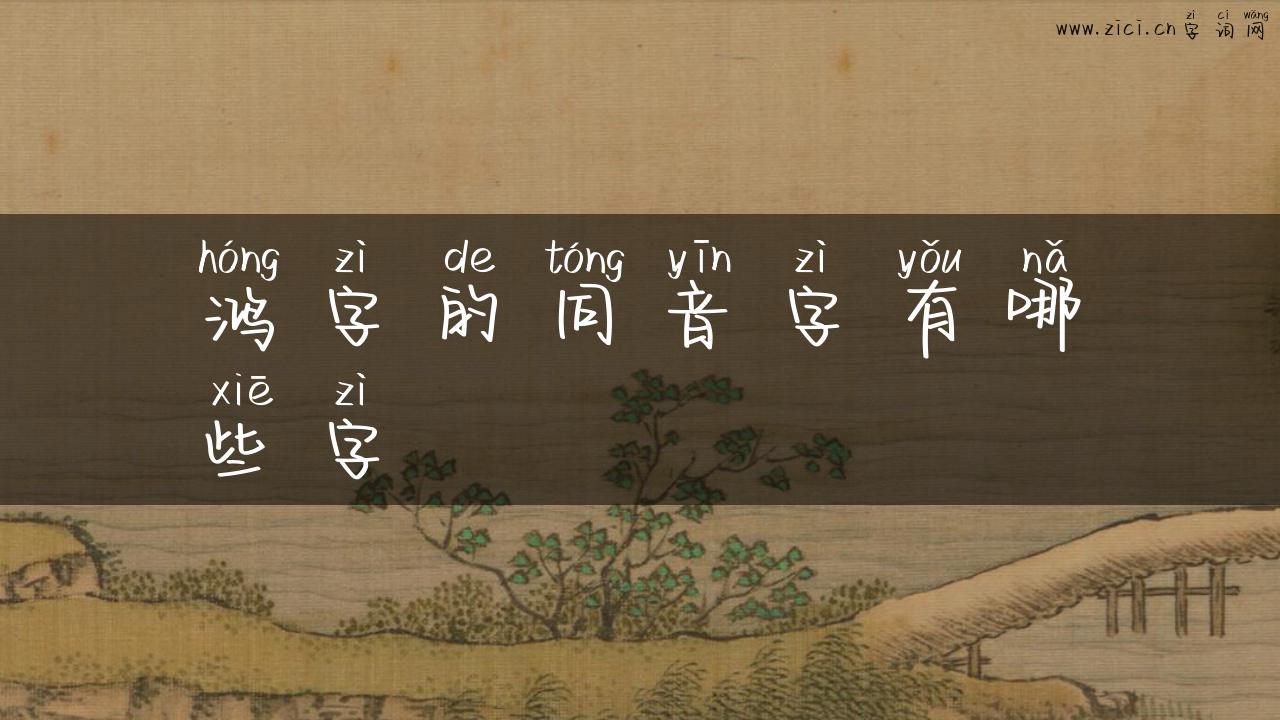 zì cí wǎng
www.zici.cn 字词网
hóng zì de tóng yīn zì yǒu nǎ
鸿字的同音字有哪
xiē zì
些字